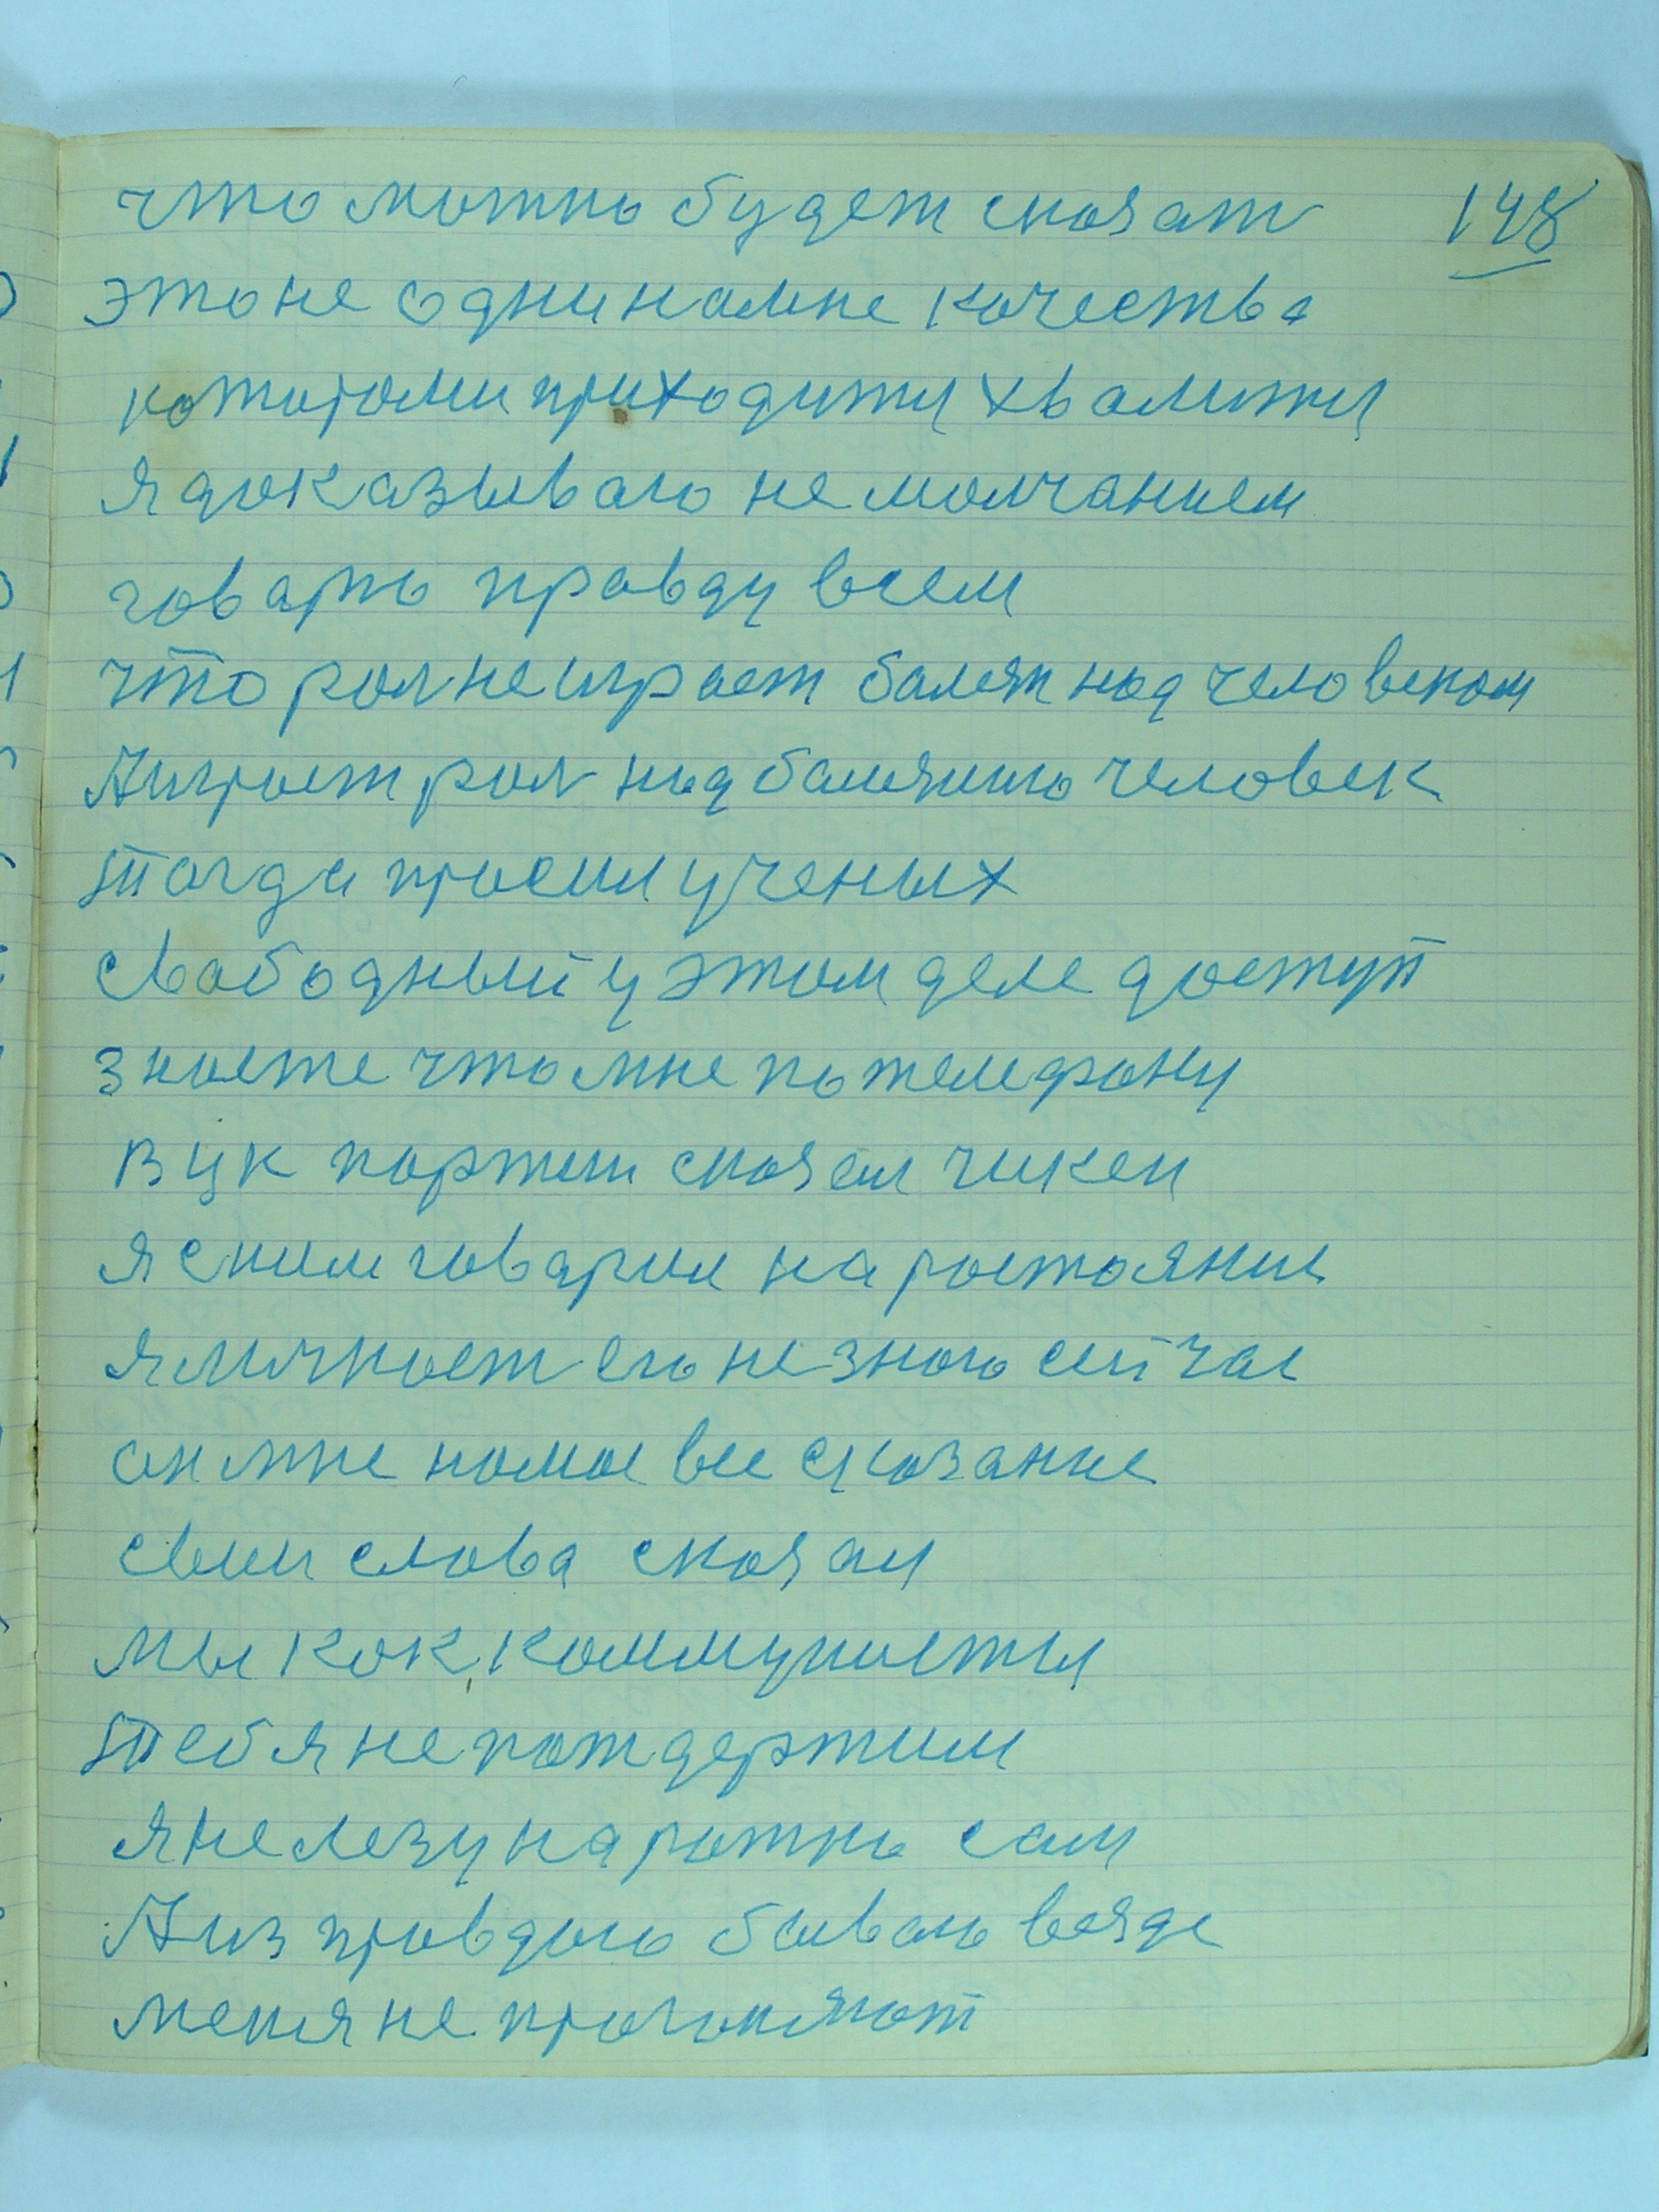 что можно будет сказат 148
это не одни на мне качества
которами приходится хвалится
я доказываю не молчанием
говарю правду всем
что рол не играет балезн над человеком
А играет рол над балезнию человек
тогда просил ученых
свабодный у этом деле доступ
знаете что мне по телефону
в цк партии сказал чикен
я с ним говарил на ростояние
я личност его не знаю сейчас
он мне на мое все сказание
свои слова сказал
мы как коммунисты
тебя не поттдержим
я не лезу на рожно сам
А из правдою бываю везде
меня не прогоняют